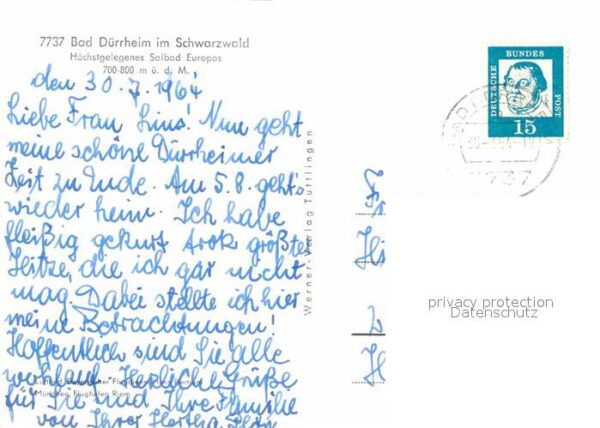 7737 Bad Dürrheim im Schwarzwald
Höchstgelegenes Solbad Europas
700-800 m ü. d. M.
den 30.7.1964
Liebe Frau Lins! Nun geht
meine schöne Dürrheimer
Zeit zu Ende. Am 5.8. geht's
wieder heim. Ich habe
fleißig gekurt trotz größter
Hitze, die ich gar nicht
mag. Dabei stellte ich hier
meine Betrachtungen!
Hoffentlich sind Sie alle
wohlauf. Herzliche Grüße
München, Flughafen Riem
für Sie und Ihre Familie
von Ihrer Hertha
Werner-Verlag Tuttlingen
DEUTSCHE
BUNDES
POST
15
7737
Fr
H
H
privacy protection
Datenschutz